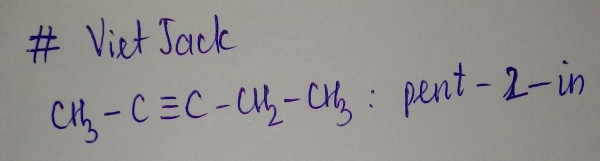 # Viet Jack
CH₃ - C ≡ C - CH₂ - CH₃ : pent - 2 - in